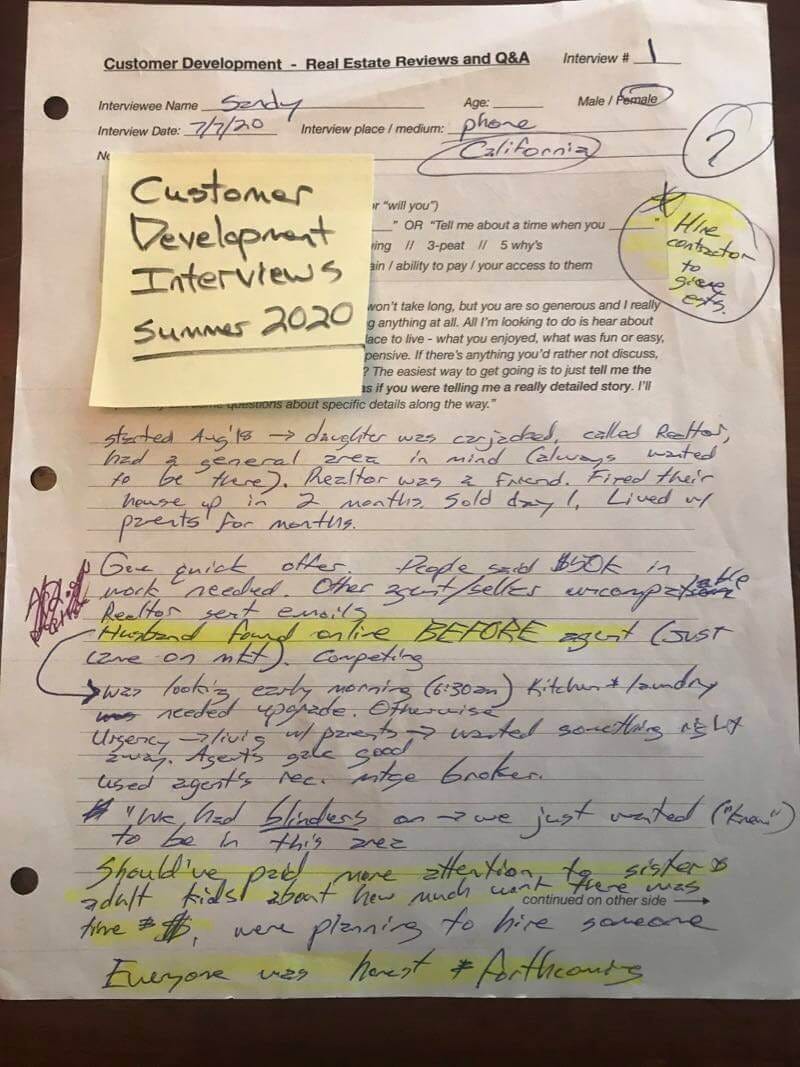 Customer Development - Real Estate Reviews and Q&A Interview # 1
Interviewee Name Sandy Age: Male / Female
Interview Date: 7/7/20 Interview place / medium: phone
California
?
Customer
Development
Interviews
Summer 2020
r "will you")
" OR "Tell me about a time when you "
ing // 3-peat // 5 why's
ain / ability to pay / your access to them
Hire
contractor
to
give
ests.
won't take long, but you are so generous and I really
g anything at all. All I'm looking to do is hear about
lace to live - what you enjoyed, what was fun or easy,
pensive. If there's anything you'd rather not discuss,
? The easiest way to get going is to just tell me the
as if you were telling me a really detailed story. I'll
questions about specific details along the way."
started Aug '18 → daughter was carjacked, called Realtor,
had a general area in mind (always wanted
to be there). Realtor was a friend. Fixed their
house up in 2 months. Sold day 1. Lived w/
parents for months.
Gave quick offer. People said $50K in
work needed. Other agent/seller
Realtor sent emails
Husband found online BEFORE agent (just
came on mkt). Competing
→ was looking early morning (6:30am) Kitchen & laundry
needed upgrade. Otherwise
Urgency → living w/ parents → wanted something right
away. Agents gave good
used agent's rec. mtge broker.
"We had blinders on → we just wanted ("knew")
to be in this area
Should've paid more attention to sister &
adult kids about how much work there was
time & $, were planning to hire someone
continued on other side →
Everyone was honest & forthcoming